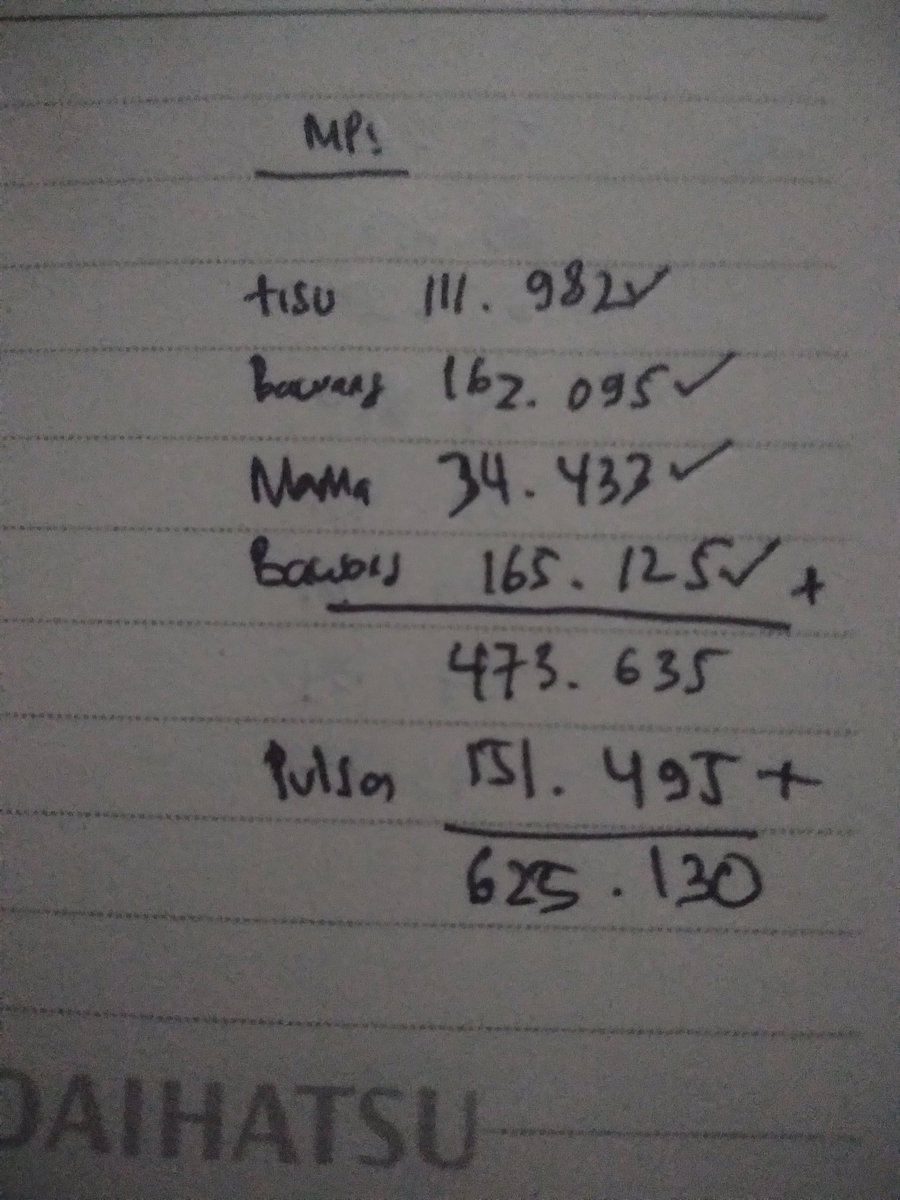 MPS
tisu 111.982✓
Bawang 162.095✓
Mama 34.433✓
Bawang 165.125✓ +
473.635
Pulsa 151.495 +
625.130
DAIHATSU